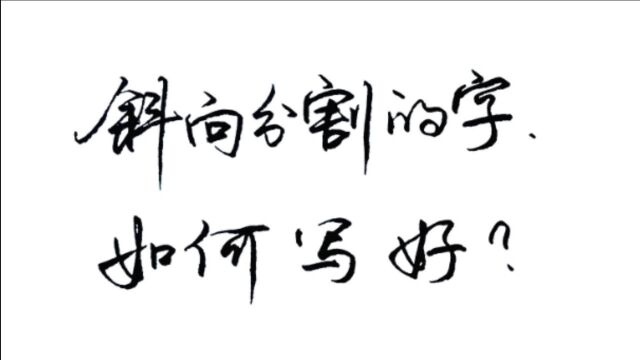 斜向分割的字.
如何写好?